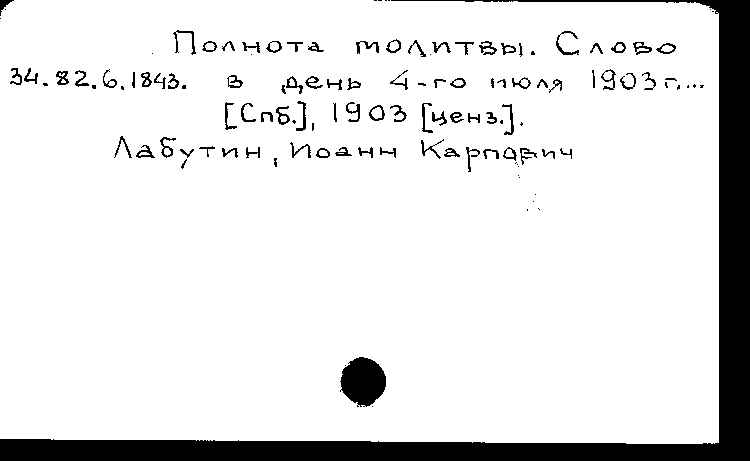 Полнота молитвы. Слово
34.82.6.1843. в день 4-го июля 1903 г....
[Спб.], 1903 [ценз.].
Лабутин, Иоанн Карпович